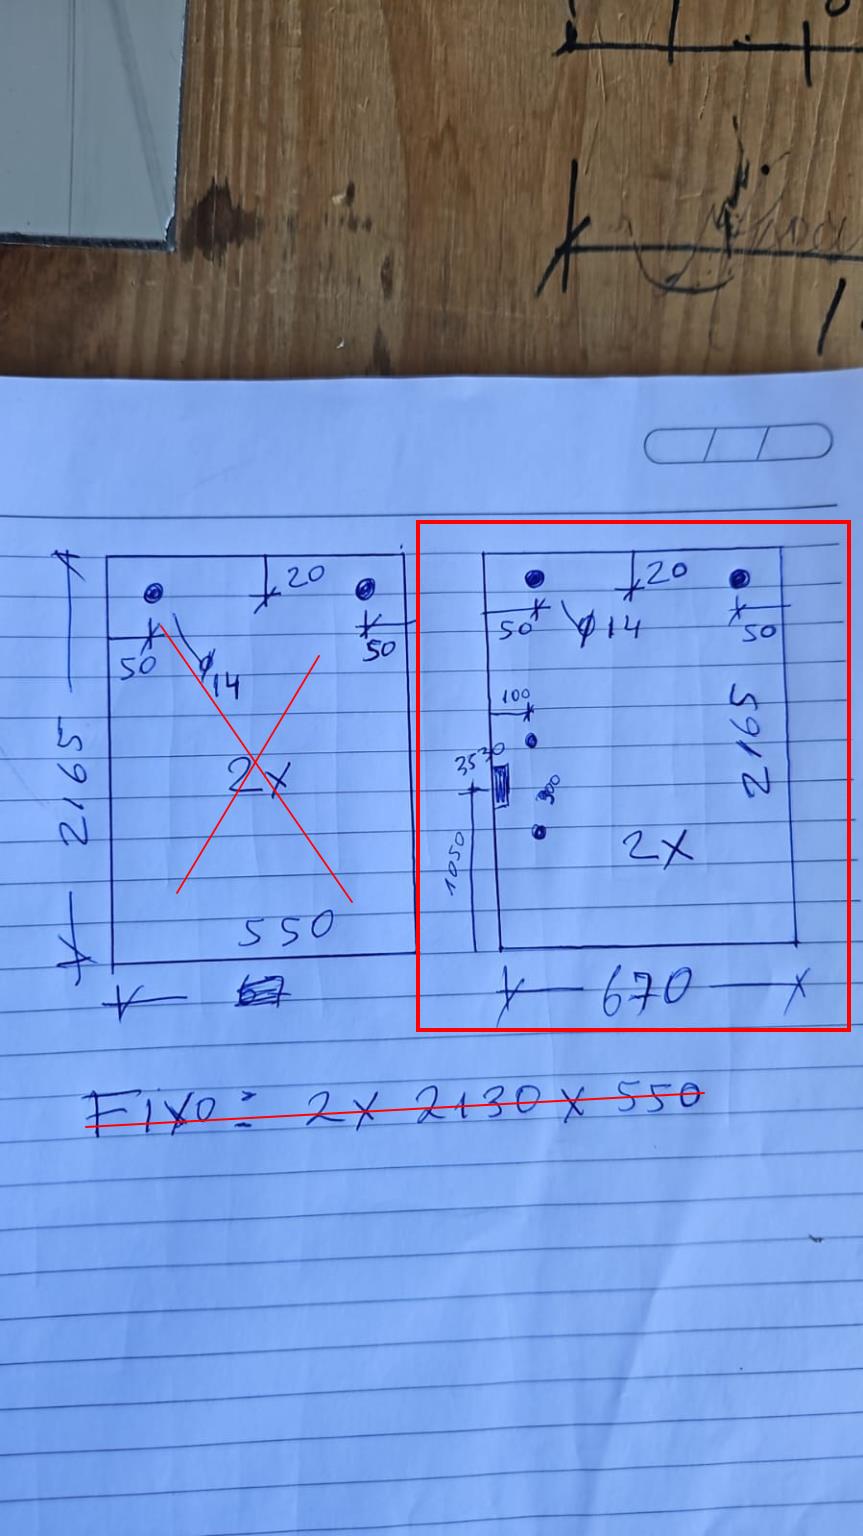 20
50
50
φ14
2165
2x
550
20
50
φ14
50
100
2165
300
1050
2x
670
Fixo: 2x 2130 x 550